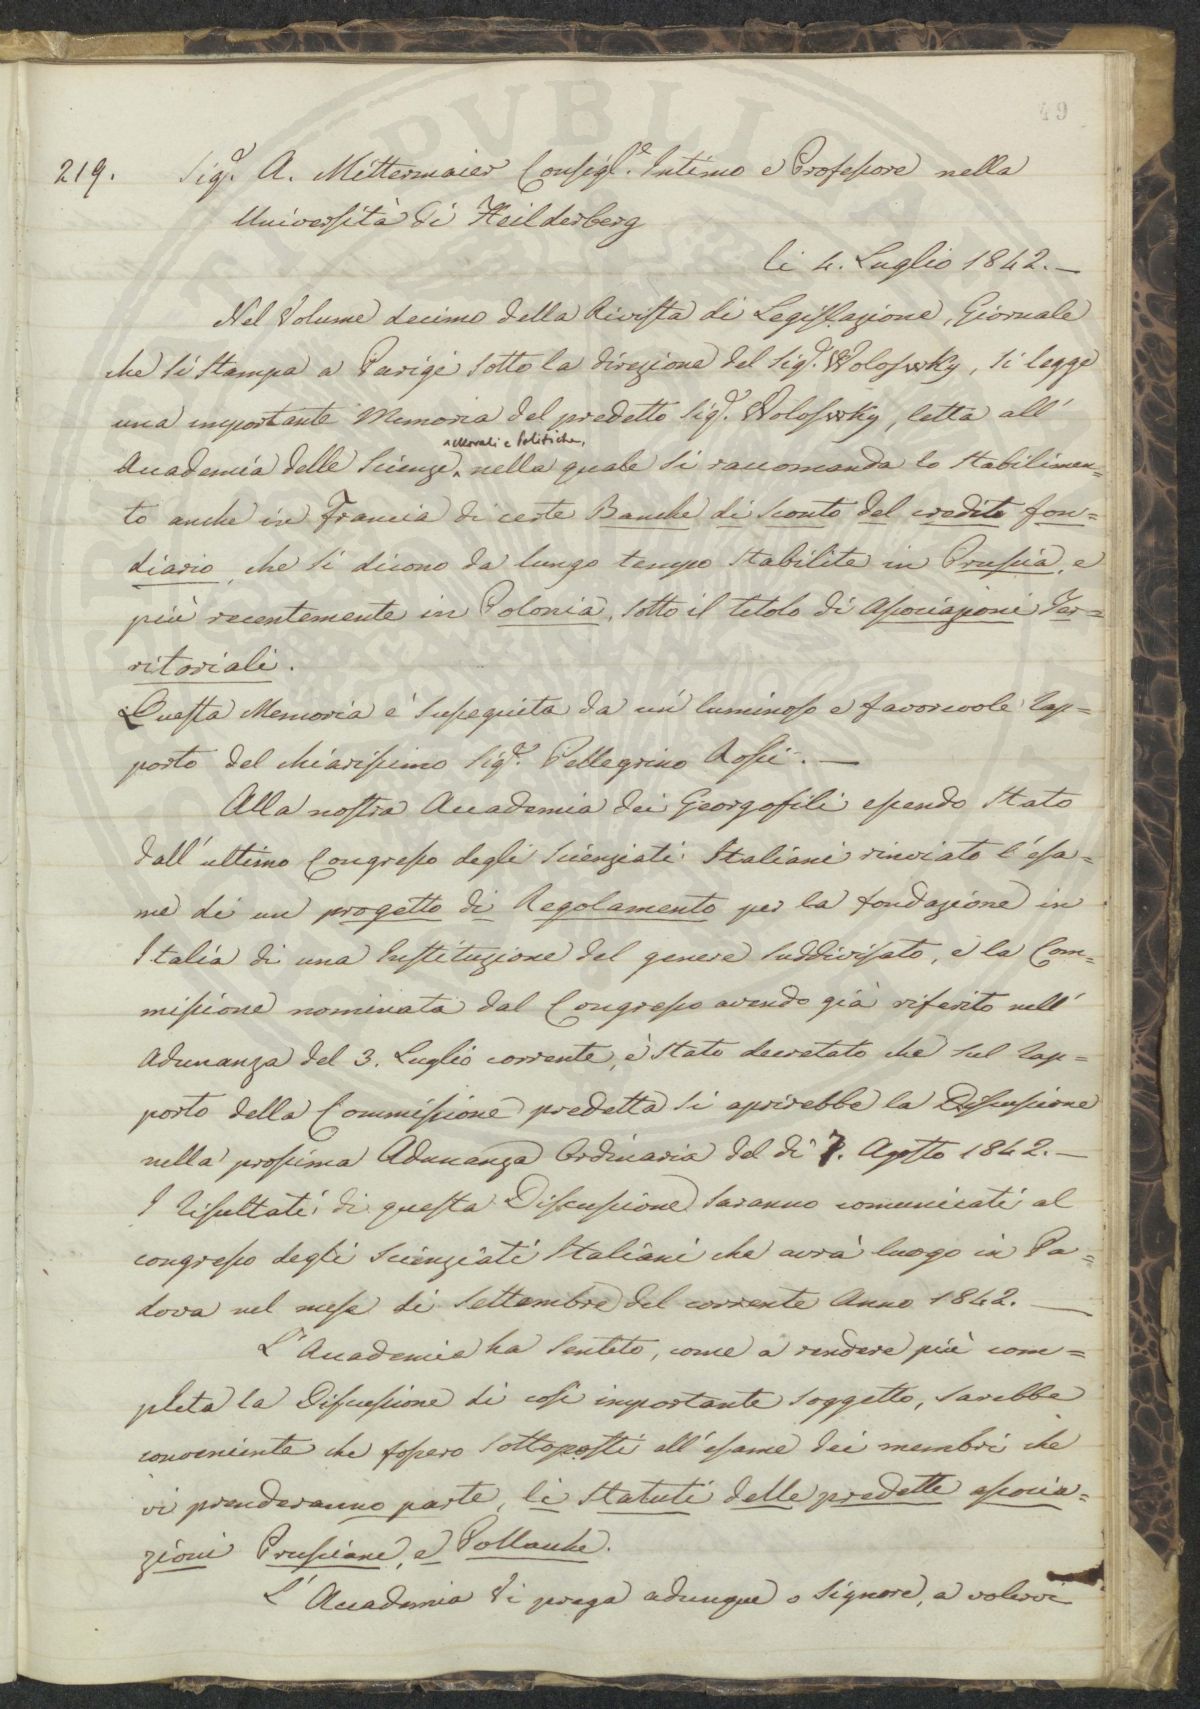 49
219. Sig.r A. Mittermaier Consigl.e Intimo e Professore nella
Università di Heilderberg
li 4. Luglio 1842.—
Nel Volume decimo della Rivista di Legislazione, Giornale
che si stampa a Parigi sotto la direzione del Sig.r Wolowky, si legge
una importante Memoria del predetto Sig.r Wolowky, letta all'
Morali e Politiche,
Accademia delle Scienze, nella quale si raccomanda lo stabilimen=
to anche in Francia di certe Banche di Sconto del credito fon=
diario, che si dicono da lungo tempo stabilite in Prussia, e
più recentemente in Polonia, sotto il titolo di Associazioni Ter=
ritoriali.
Questa Memoria è susseguita da un luminoso e favorevole Rap=
porto del chiarissimo Sig.r Pellegrino Rossi.—
Alla nostra Accademia dei Georgofili essendo stato
dall'ultimo Congresso degli Scienziati Italiani rinviato l'esa=
me di un progetto di Regolamento per la fondazione in
Italia di una Instituzione del genere suddivisato, e la Com=
missione nominata dal Congresso avendo già riferito nell'
Adunanza del 3. Luglio corrente, è stato decretato che sul Rap=
porto della Commissione predetta si aprirebbe la Discussione
nella prossima Adunanza Ordinaria del di 7. Agosto 1842.—
I Risultati di questa Discussione saranno comunicati al
congresso degli Scienziati Italiani che avrà luogo in Pa=
dova nel mese di Settembre del corrente Anno 1842.—
L'Accademia ha sentito, come a rendere più com=
pleta la Discussione di così importante soggetto, sarebbe
conveniente che fossero sottoposti all'esame dei membri che
vi prenderanno parte, li Statuti delle predette associa=
zioni Prussiane, e Pollacche.
L'Accademia Vi prega adunque o Signore, a volervi